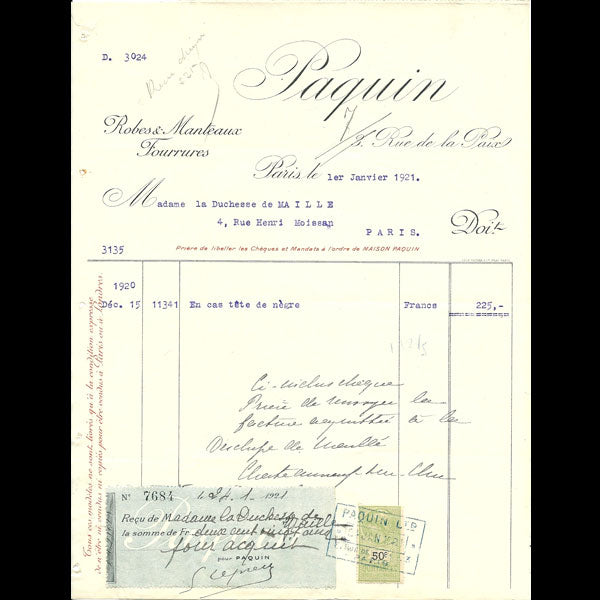 D. 3024
Paquin
Robes & Manteaux
Fourrures
3. Rue de la Paix
Paris, le 1er Janvier 1921.
Madame la Duchesse de MAILLE
4, Rue Henri Moissan
PARIS.
Doit
3135
Prière de libeller les Chèques et Mandats à l'ordre de MAISON PAQUIN
1920
Déc. 15 11341 En cas tête de nègre Francs 225,-
Tous ces modèles ne sont livrés qu'à la condition expresse
de n'être ni vendus ni copiés pour être vendus à Paris ou à Londres.
Ci-inclus chèque
Prière de renvoyer la
facture acquittée à la
Duchesse de Maillé
Chateauneuf sur Cher
No 7684 24.1.1921
Reçu de Madame la Duchesse de Maillé
la somme de Fr. deux cent
pour acquit
pour PAQUIN
PAQUIN LTD
50c
PARIS